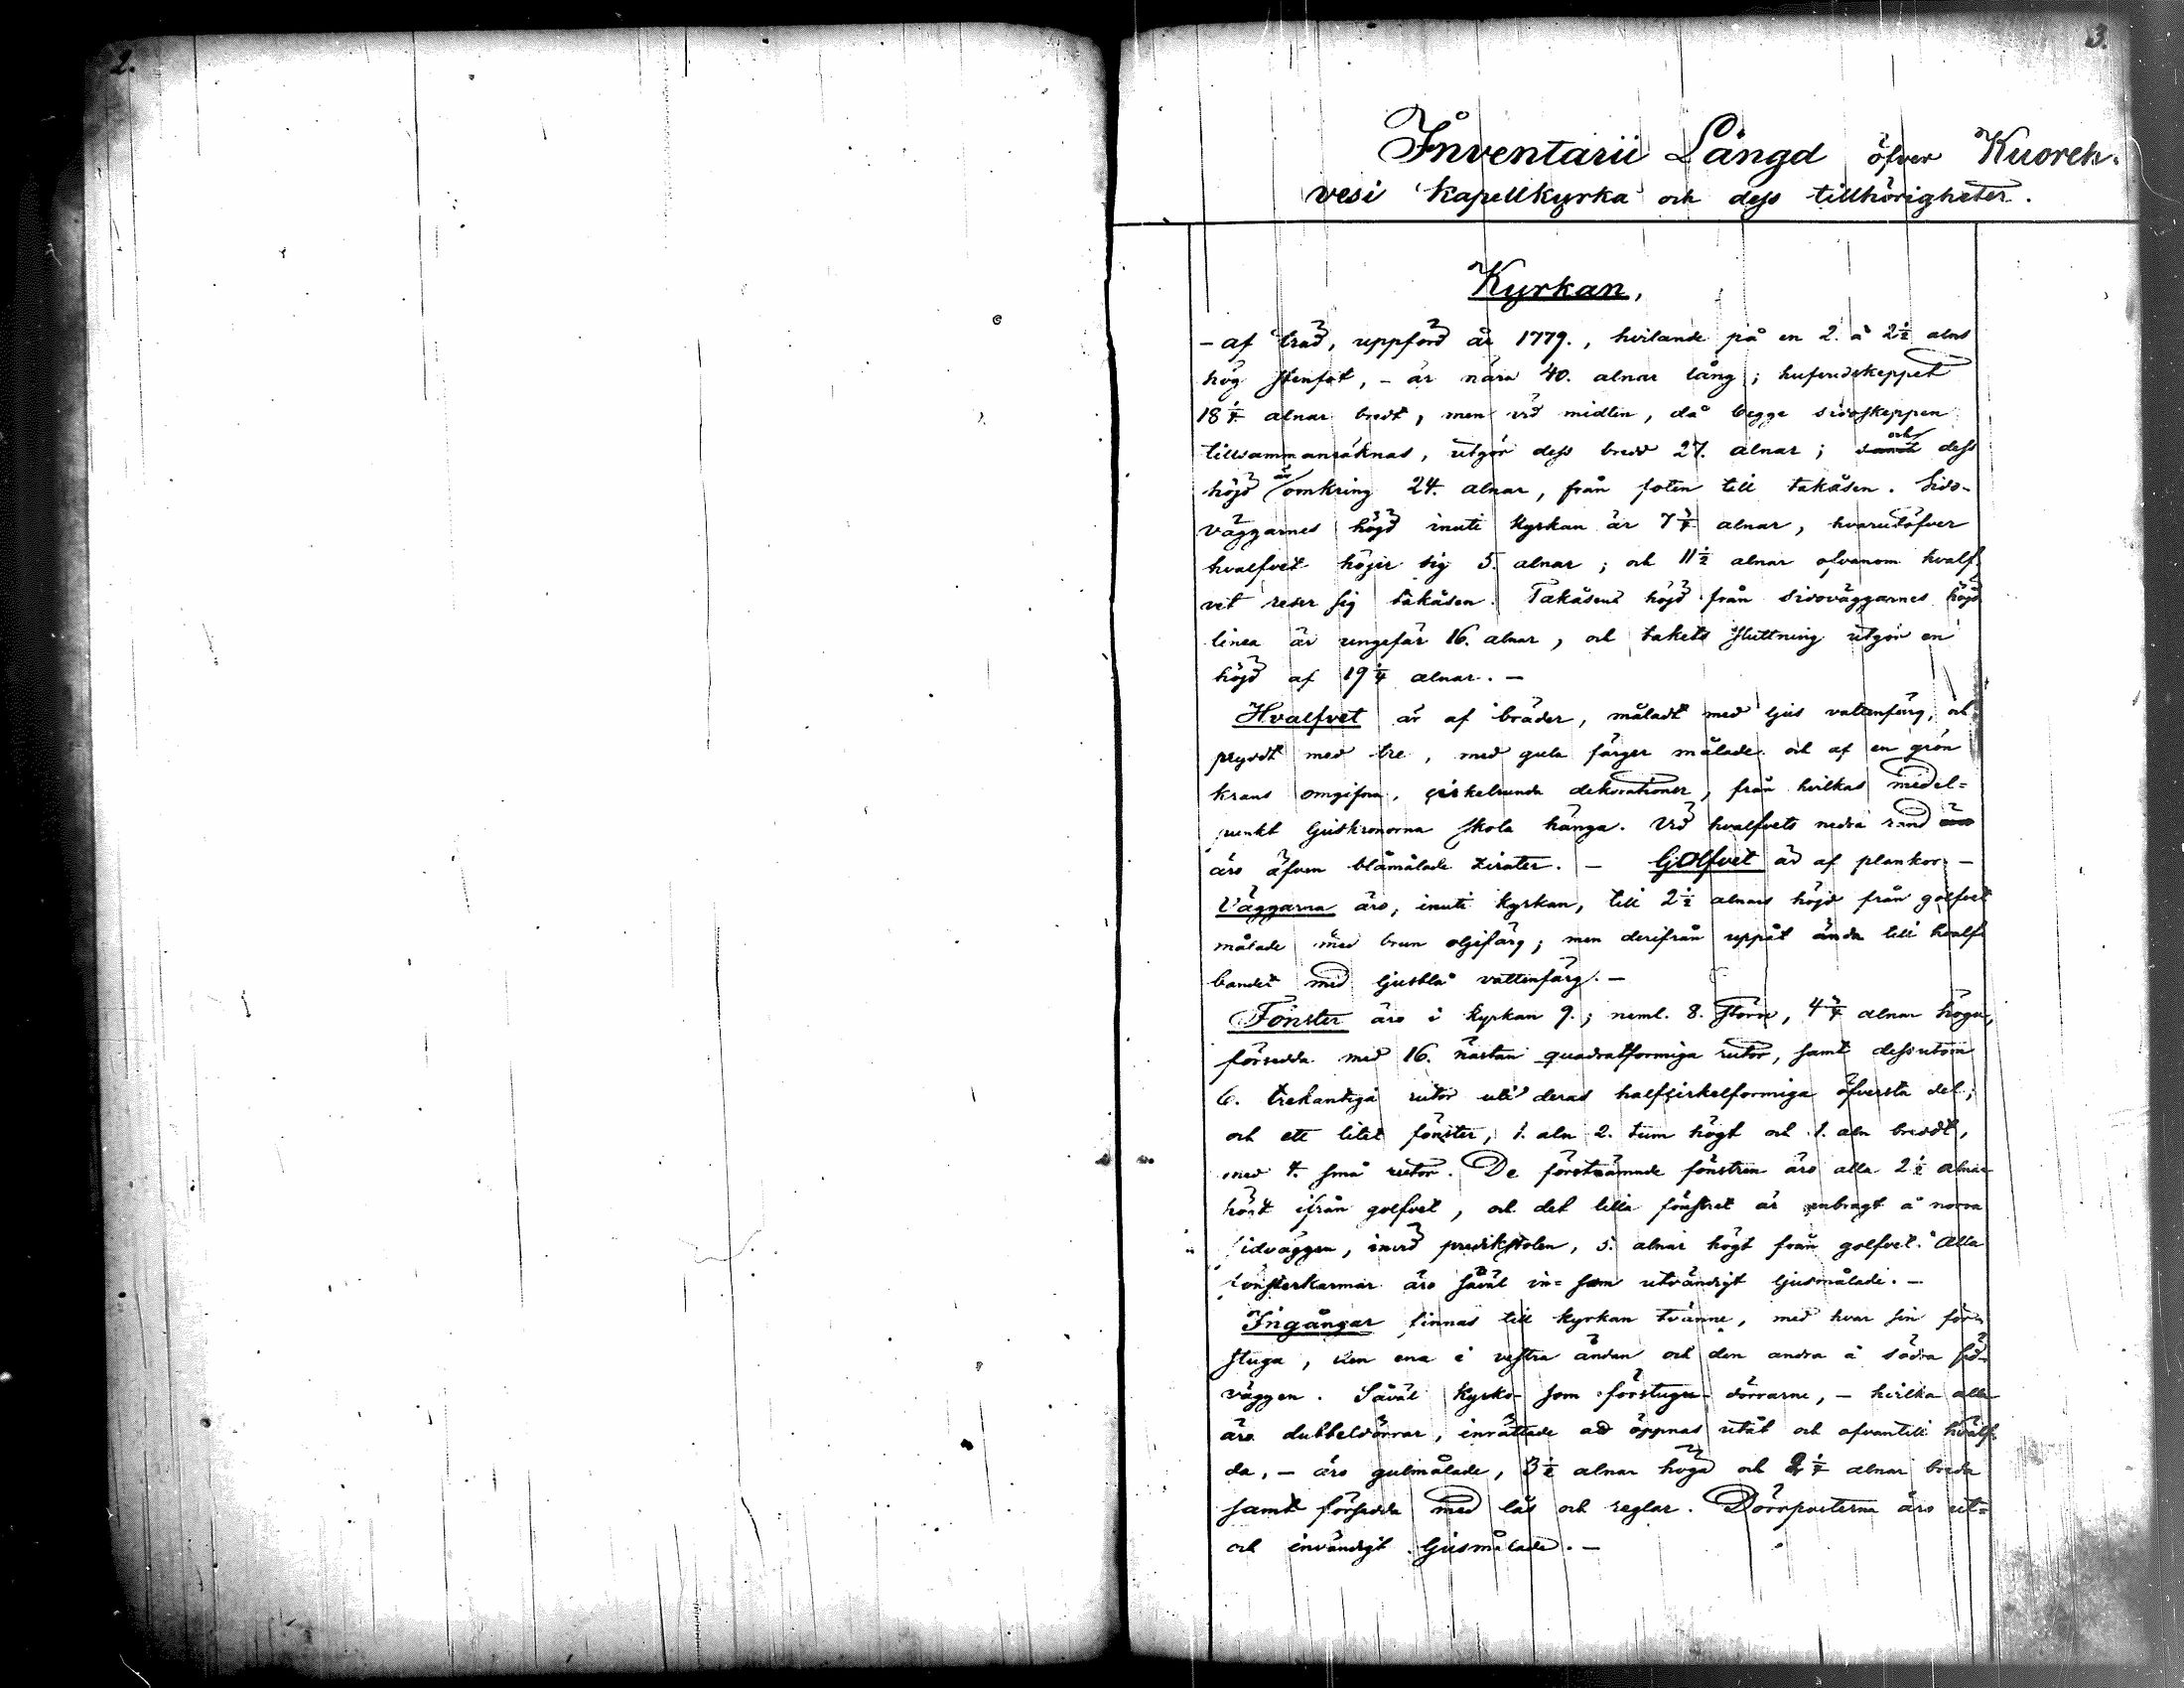 2.
3.
Inventarii Längd öfver Kuoreh-
vesi kapellkyrka och dess tillhörigheter.
Kyrkan,
– af träd, uppförd år 1779., hvilande på en 2. à 2½ alns
hög stenfot, – är nära 40. alnar lång; hufvudskeppet
18¼ alnar bredt, men vid midlen, då begge sidoskeppen
tillsammansräknas, utgör dess bredd 27. alnar; samt och dess
höjd är omkring 24. alnar, från foten till takåsen. Sido-
väggarnes höjd inuti kyrkan är 7¾ alnar, hvarutöfver
hvalfvet höjer sig 5. alnar; och 11½ alnar ofvanom hvalf-
vet reser sig takåsen. Takåsens höjd från sidoväggarnes höjd
linea är ungefär 16. alnar, och takets sluttning utgör en
höjd af 19¼ alnar. –
Hvalfvet är af bräder, måladt med ljus vattenfärg, och
prydt med tre, med gula färger målade och af en grön
krans omgifna, cirkelrunda dekorationer, från hvilkas medel=
punkt ljuskronorna skola hänga. Vid hvalfvets nedra rand
äro äfven blåmålade zirater. – Golfvet är af plankor. –
Väggarna äro, inuti kyrkan, till 2½ alnars höjd från golfvet
målade med brun oljefärg; men derifrån uppåt ända till hvalf-
bandet med ljusblå vattenfärg. –
Fönster äro i kyrkan 9.; neml. 8. större, 4¾ alnar höga,
försedda med 16. nästan quadratformiga rutor, samt dessutom
6. trekantiga rutor uti deras halfcirkelformiga öfversta del;
och ett litet fönster, 1. aln 2. tum högt och 1. aln bredt,
med 4. små rutor. De förstnämnde fönstren äro alla 2½ alnar
högt ifrån golfvet, och det lilla fönstret är anbragt å norra
sidväggen, invid predikstolen, 5. alnar högt från golfvet. Alla
fönsterkarmar äro såväl in= som utvändigt ljusmålade. –
Ingångar finnas till kyrkan tvänne, med hvar sin för-
stuga, den ena i vestra ändan och den andra å södra sid-
väggen. Såväl kyrko- som förstugu-dörrarne, – hvilka alla
äro dubbeldörrar, inrättade att öppnas utåt och ofvantill hvälf-
da, – äro gulmålade, 3½ alnar höga och 2¼ alnar breda
samt försedda med lås och reglar. Dörrposterna äro ut=
och invändigt ljusmålade. –